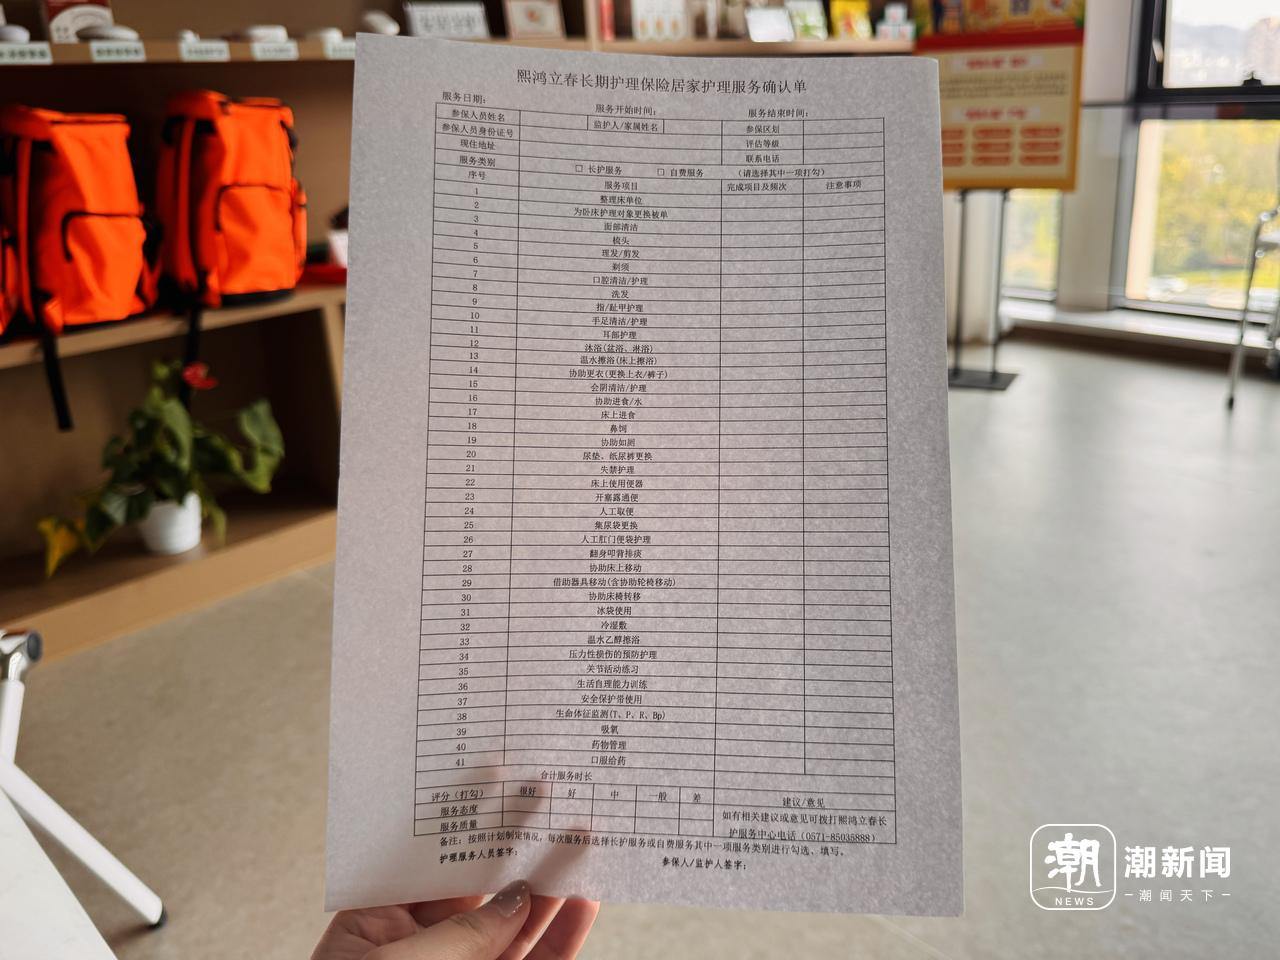 熙鸿立春长期护理保险居家护理服务确认单
服务日期： 服务开始时间： 服务结束时间：
参保人员姓名 监护人/家属姓名 参保区划
参保人员身份证号 评估等级
现住地址 联系电话
服务类别 □ 长护服务 □ 自费服务 （请选择其中一项打勾）
序号 服务项目 完成项目及频次 注意事项
1 整理床单位
2 为卧床护理对象更换被单
3 面部清洁
4 梳头
5 理发/剪发
6 剃须
7 口腔清洁/护理
8 洗发
9 指/趾甲护理
10 手足清洁/护理
11 耳部护理
12 沐浴(盆浴、淋浴)
13 温水擦浴(床上擦浴)
14 协助更衣(更换上衣/裤子)
15 会阴清洁/护理
16 协助进食/水
17 床上进食
18 鼻饲
19 协助如厕
20 尿垫、纸尿裤更换
21 失禁护理
22 床上使用便器
23 开塞露通便
24 人工取便
25 集尿袋更换
26 人工肛门便袋护理
27 翻身叩背排痰
28 协助床上移动
29 借助器具移动(含协助轮椅移动)
30 协助床椅转移
31 冰袋使用
32 冷湿敷
33 温水乙醇擦浴
34 压力性损伤的预防护理
35 关节活动练习
36 生活自理能力训练
37 安全保护带使用
38 生命体征监测(T、P、R、Bp)
39 吸氧
40 药物管理
41 口服给药
合计服务时长
评分（打勾） 很好 好 中 一般 差 建议/意见
服务态度 如有相关建议或意见可拨打熙鸿立春长
服务质量 护服务中心电话（0571-85035888）
备注：按照计划制定情况，每次服务后选择长护服务或自费服务其中一项服务类别进行勾选、填写。
护理服务人员签字： 参保人/监护人签字：
潮
NEWS
潮新闻
潮闻天下